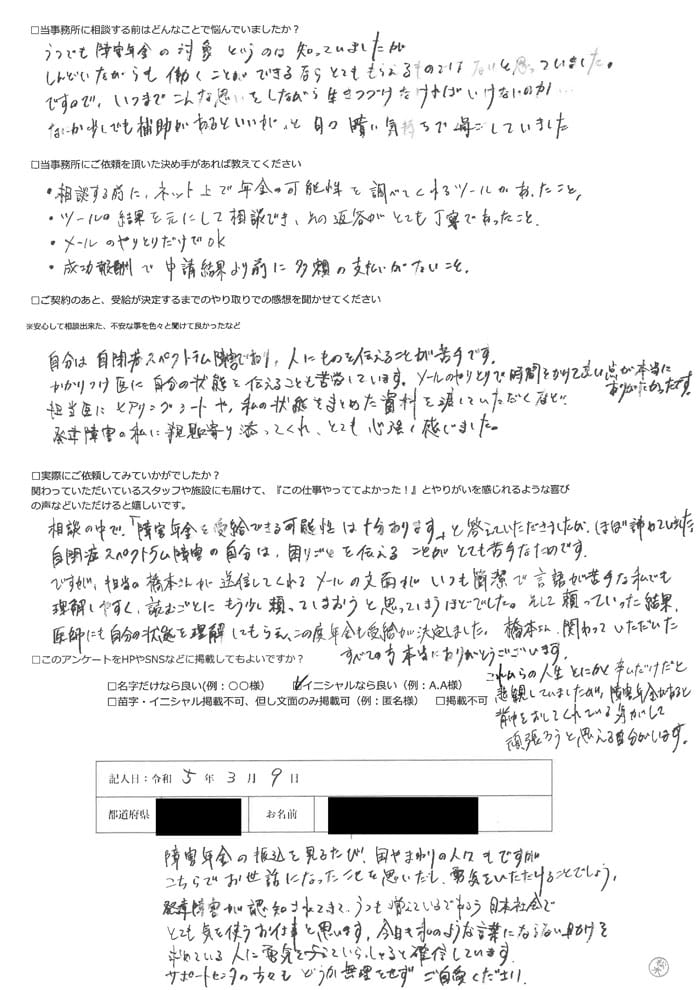 □当事務所に相談する前はどんなことで悩んでいましたか？
うつでも障害年金の対象というのは知っていましたが
しんどいながらも働くことができるならとてももらえるものではないと思っていました。
ですので、いつまでこんな思いをしながら生きつづけなければいけないのか…
なにか少しでも補助があるといいが、と日々暗い気持ちで過ごしていました
□当事務所にご依頼を頂いた決め手があれば教えてください
・相談する前に、ネット上で年金の可能性を調べてくれるツールがあったこと,
・ツールの結果を元にして相談でき、その返答がとても丁寧であったこと.
・メールのやりとりだけでOK
・成功報酬で申請結果より前に多額の支払いがないこと.
□ご契約のあと、受給が決定するまでのやり取りでの感想を聞かせてください
※安心して相談出来た、不安な事を色々と聞けて良かったなど
自分は自閉症スペクトラム障害であり、人にものを伝えることが苦手です。
かかりつけ医に自分の状態を伝えることも苦労しています。メールのやりとりで時間をかけて良い点が本当に
ありがたかったです。
担当医にヒアリングシートや、私の状態をまとめた資料を渡していただくなど
発達障害の私に親身に寄り添ってくれ、とても心強く感じました。
□実際にご依頼してみていかがでしたか？
関わっていただいているスタッフや施設にも届けて、『この仕事やっててよかった！』とやりがいを感じれるような喜び
の声などいただけると嬉しいです。
相談の中で、「障害年金を受給できる可能性は十分あります」と答えていただきましたが、ほぼ諦めていました
自閉症スペクトラム障害の自分は、困りごとを伝えることがとても苦手なためです。
ですが、担当の橋本さんが送信してくれるメールの文面がいつも簡潔で言語が苦手な私でも
理解しやすく、読むごとにもう少し頼ってしまおうと思ってしまうほどでした。そして頼っていった結果、
医師にも自分の状態を理解してもらえ、この度年金も受給が決定しました。橋本さん、関わっていただいた
すべての方本当にありがとうございます。
□このアンケートをHPやSNSなどに掲載してもよいですか？
□名字だけなら良い(例：〇〇様) ☑イニシャルなら良い（例：A.A様）
□苗字・イニシャル掲載不可、但し文面のみ掲載可（例：匿名様） □掲載不可
これからの人生とにかく辛いだけだと
悲観していましたが、障害年金があると
背中をおしてくれている気がして
頑張ろうと思える自分がいます。
記入日：令和 5 年 3 月 9 日
都道府県 お名前
障害年金の振込を見るたび、国やまわりの人々もですが
こちらでお世話になったことを思いだし、勇気をいただけることでしょう。
発達障害が認知されてきて、うつも増えているであろう日本社会で
とても気を使うお仕事と思います。今日も私のような言葉にならない助けを
求めている人に勇気を与えていらっしゃると確信しています。
サポートセンターの方々もどうか無理をせずご自愛ください。